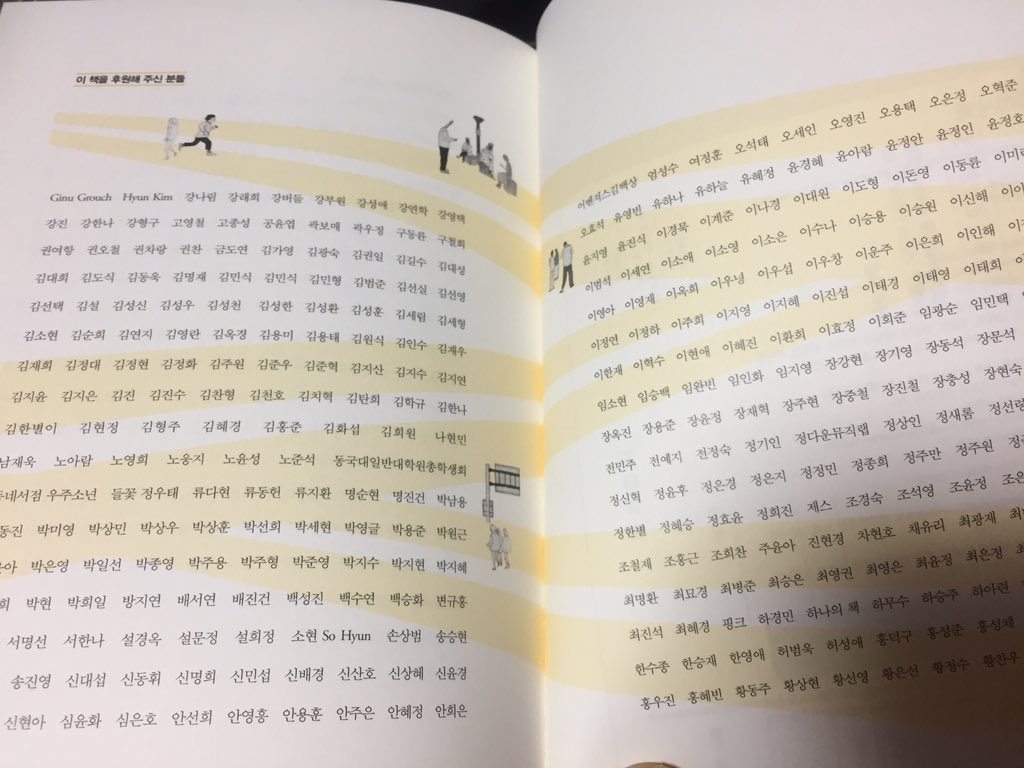 이 책을 후원해 주신 분들
Ginu Grouch Hyun Kim 강나림 강래희 강버들 강부원 강성애 강연학 강영택
강진 강한나 강형구 고영철 고종성 공윤엽 곽보매 곽우정 구동륜 구철회
권여항 권오철 권차랑 권찬 금도연 김가영 김광숙 김권일 김길수 김대성
김대희 김도식 김동욱 김명재 김민식 김민식 김민형 김범준 김선실 김선영
김선택 김설 김성신 김성우 김성천 김성한 김성환 김성훈 김세림 김세형
김소현 김순희 김연지 김영란 김옥경 김용미 김용태 김원식 김인수 김재우
김재희 김정대 김정현 김정화 김주원 김준우 김준혁 김지산 김지수 김지연
김지윤 김지은 김진 김진수 김찬형 김천호 김치혁 김탄희 김학규 김한나
김한별이 김현정 김형주 김혜경 김홍준 김화섭 김회원 나현민
남재욱 노아람 노영희 노웅지 노윤성 노준석 동국대일반대학원총학생회
동네서점 우주소년 들꽃 정우태 류다현 류동헌 류지환 명순현 명진건 박남용
동진 박미영 박상민 박상우 박상훈 박선희 박세현 박영글 박용준 박원근
박은영 박일선 박종영 박주용 박주형 박준영 박지수 박지현 박지혜
박현 박희일 방지연 배서연 배진건 백성진 백수연 백승화 변규홍
서명선 서한나 설경욱 설문정 설희정 소현 So Hyun 손상범 송승현
송진영 신대섭 신동휘 신명희 신민섭 신배경 신산호 신상혜 신윤경
신현아 심윤화 심은호 안선희 안영흥 안용훈 안주은 안혜정 안희은
어벤져스김백상 엄성수 여정훈 오석태 오세인 오영진 오용택 오은정 오혁준
오효석 유영빈 유하나 유하늘 유혜정 윤경혜 윤아람 윤정안 윤정인 윤정호
윤지영 윤진식 이경묵 이계준 이나경 이대원 이도형 이돈영 이동륜 이미
이범석 이세연 이소애 이소영 이소은 이수나 이승용 이승원 이신해
이영아 이영재 이옥희 이우녕 이우섭 이우창 이윤주 이은희 이인해
이정연 이정하 이주희 이지영 이지혜 이진섭 이태경 이태영 이태희
이한재 이혁수 이현애 이혜진 이환희 이효정 이희준 임광순 임민택
임소현 임승백 임완빈 임인화 임지영 장강현 장기영 장동석 장문석
장옥진 장용준 장윤정 장재혁 장주현 장중철 장진철 장충성 장현숙
전민주 전예지 전정숙 정기인 정다운뮤직랩 정상인 정새롬 정선령
정신혁 정윤후 정은경 정은지 정정민 정종희 정주만 정주원
정한별 정혜승 정효윤 정희진 제스 조경숙 조석영 조윤정
조철제 조홍근 조희찬 주윤아 진현경 차현호 채유리 최광재
최명환 최묘경 최병준 최승은 최영권 최영은 최윤정 최은정
최진석 최혜경 핑크 하경민 하나의 책 하무수 하승주 하아련
한수종 한승재 한영애 허범욱 허성애 홍덕구 홍성준 홍성채
홍우진 홍혜빈 황동주 황상현 황선영 황은선 황정수 황찬우